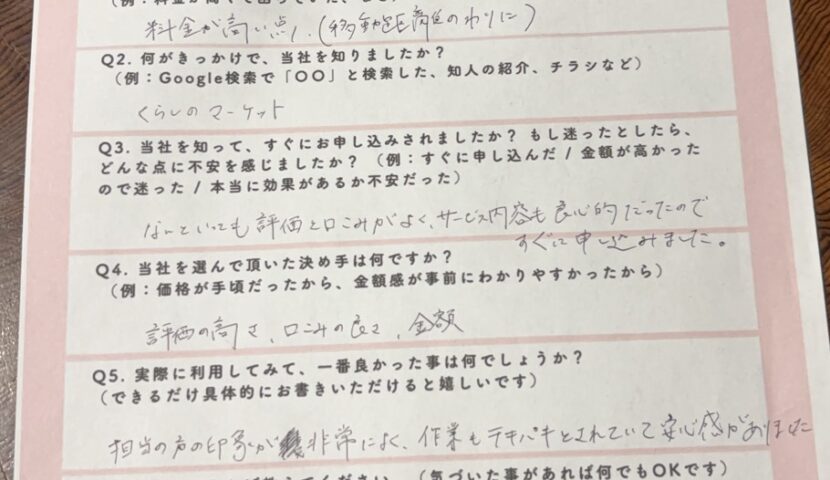 料金が高い点。(移動距離のわりに)
Q2. 何がきっかけで、当社を知りましたか？
(例：Google検索で「〇〇」と検索した、知人の紹介、チラシなど)
くらしのマーケット
Q3. 当社を知って、すぐにお申し込みされましたか？ もし迷ったとしたら、
どんな点に不安を感じましたか？ (例：すぐに申し込んだ / 金額が高かった
ので迷った / 本当に効果があるか不安だった)
なんといっても評価と口こみがよく、サービス内容も良心的だったので
すぐに申し込みました。
Q4. 当社を選んで頂いた決め手は何ですか？
(例：価格が手頃だったから、金額感が事前にわかりやすかったから)
評価の高さ、口こみの良さ、金額
Q5. 実際に利用してみて、一番良かった事は何でしょうか？
(できるだけ具体的にお書きいただけると嬉しいです)
担当の方の印象が非常によく、作業もテキパキとされていて安心感がありました
ください。 (気づいた事があれば何でもOKです)